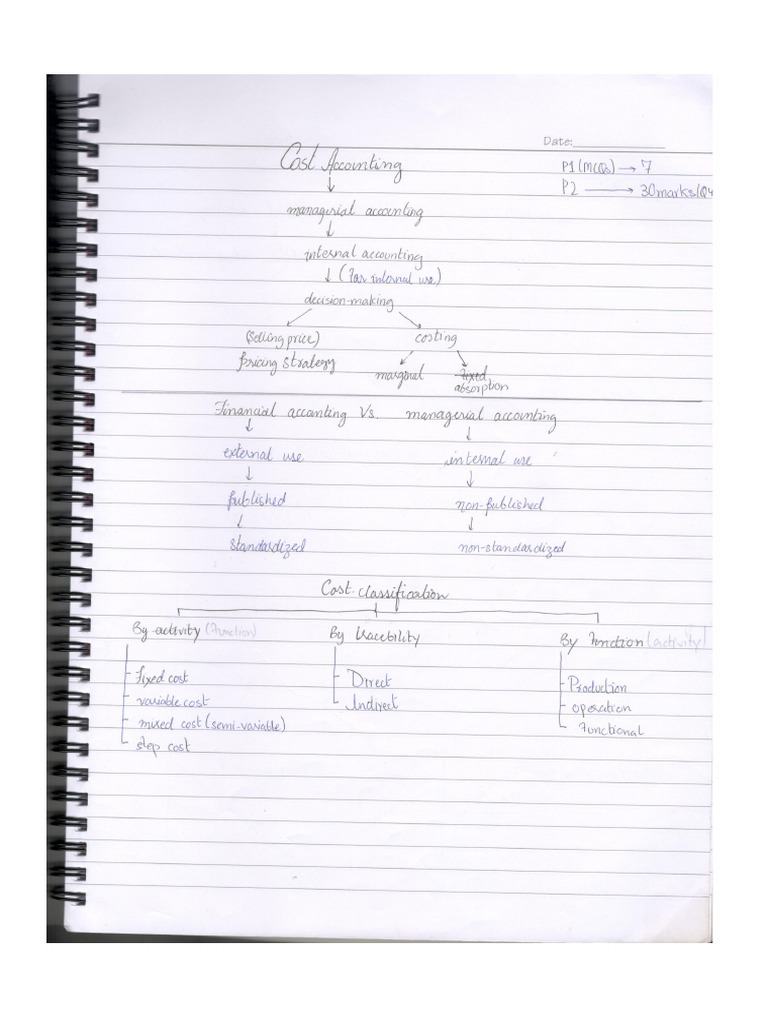 Date:
Cost Accounting
P1 (MCQs) → 7
P2 → 30marks/Q4
↓
managerial accounting
↓
internal accounting
↓ (For internal use)
decision-making
(selling price) costing
pricing strategy marginal fixed
absorption
Financial accounting Vs. managerial accounting
↓ ↓
external use internal use
↓ ↓
published non-published
↓ ↓
standardized non-standardized
Cost classification
By activity (Function) By tracebility By Function (activity)
Fixed cost Direct Production
variable cost Indirect operation
mixed cost (semi-variable) Functional
step cost